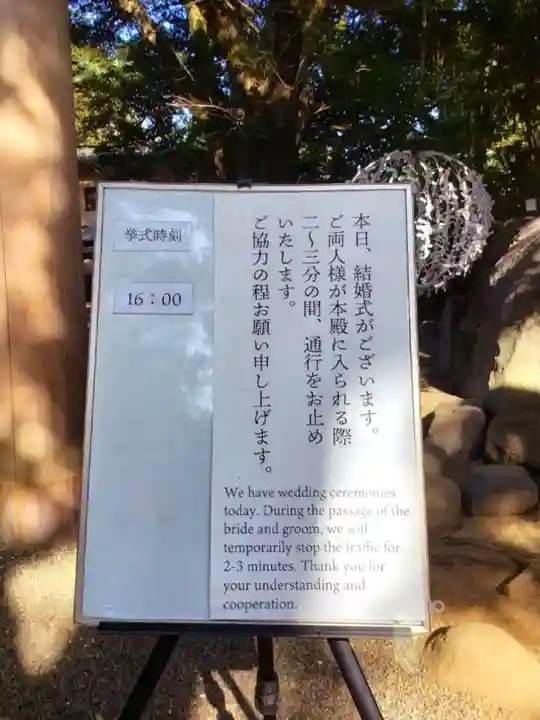 挙式時刻
16：00
本日、結婚式がございます。
ご両人様が本殿に入られる際
二〜三分の間、通行をお止め
いたします。
ご協力の程お願い申し上げます。
We have wedding ceremonies
today. During the passage of the
bride and groom, we will
temporarily stop the traffic for
2-3 minutes. Thank you for
your understanding and
cooperation.